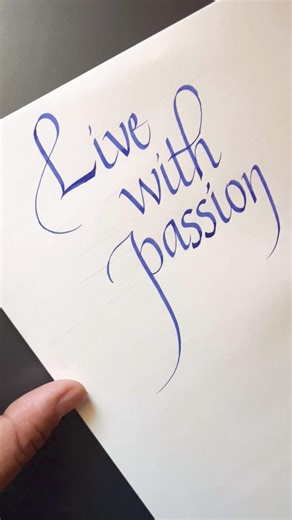 Live
with
passion